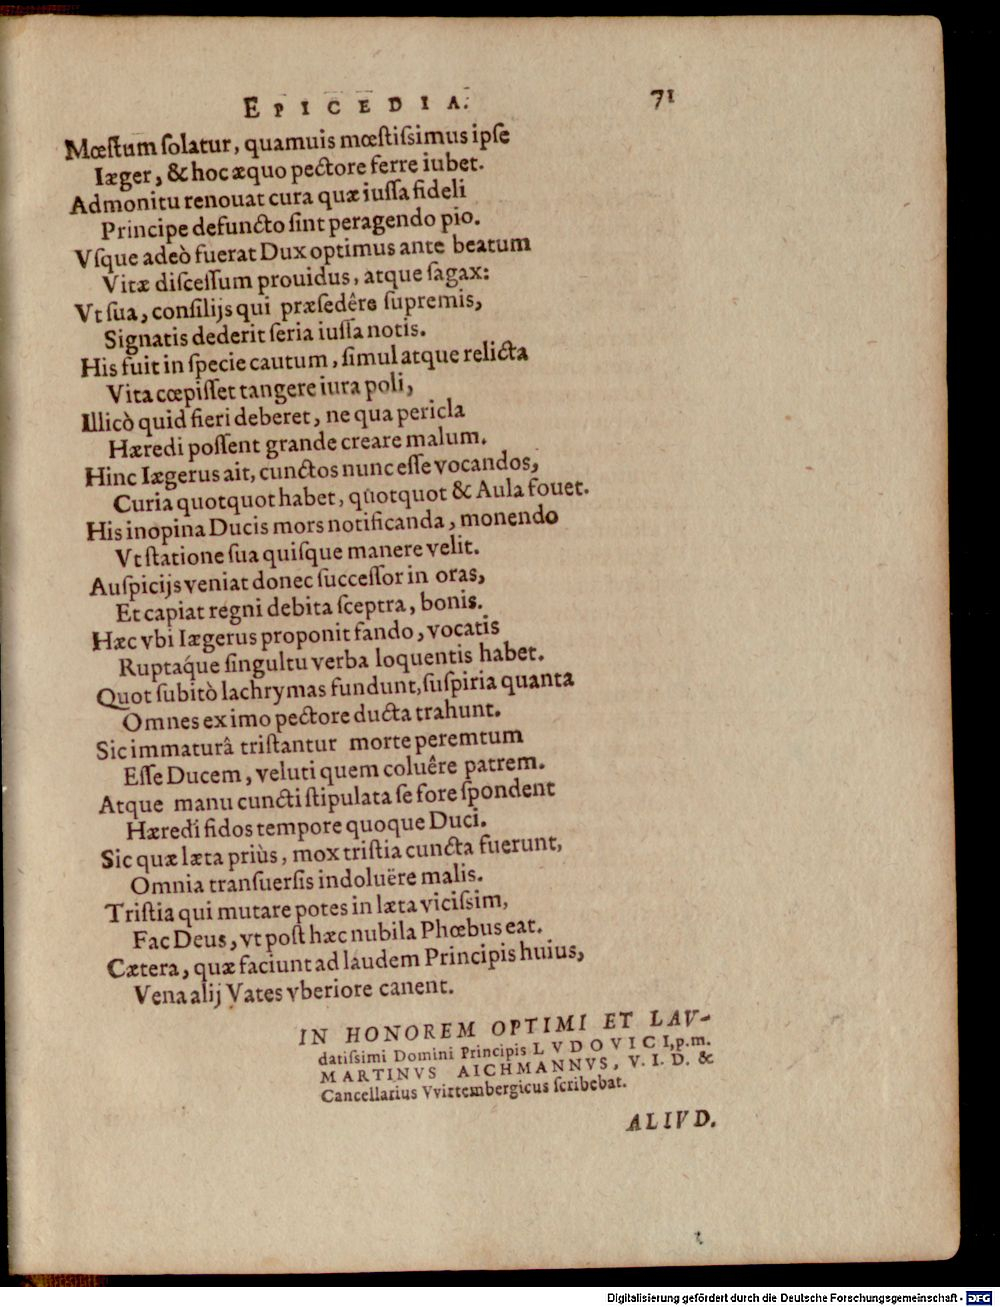 EPICEDIA. 71
Mœstum ſolatur, quamuis mœſtiſsimus ipſe
Iæger, & hoc æquo pectore ferre iubet.
Admonitu renouat cura quæ iuſſa fideli
Principe defuncto ſint peragendo pio.
Vſque adeò fuerat Dux optimus ante beatum
Vitæ diſceſſum prouidus, atque ſagax:
Vt ſua, conſilijs qui præſedêre ſupremis,
Signatis dederit ſeria iuſſa notis.
His fuit in ſpecie cautum, ſimul atque relicta
Vita cœpiſſet tangere iura poli,
Illicò quid fieri deberet, ne qua pericla
Hæredi poſſent grande creare malum.
Hinc Iægerus ait, cunctos nunc eſſe vocandos,
Curia quotquot habet, quotquot & Aula fouet.
His inopina Ducis mors notificanda, monendo
Vt ſtatione ſua quiſque manere velit.
Auſpicijs veniat donec ſucceſſor in oras,
Et capiat regni debita ſceptra, bonis.
Hæc vbi Iægerus proponit fando, vocatis
Ruptáque ſingultu verba loquentis habet.
Quot ſubitò lachrymas fundunt, ſuſpiria quanta
Omnes ex imo pectore ducta trahunt.
Sic immaturâ triſtantur morte peremtum
Eſſe Ducem, veluti quem coluêre patrem.
Atque manu cuncti ſtipulata ſe fore ſpondent
Hæredi fidos tempore quoque Duci.
Sic quæ læta priùs, mox triſtia cuncta fuerunt,
Omnia transuerſis indoluëre malis.
Triſtia qui mutare potes in læta viciſsim,
Fac Deus, vt poſt hæc nubila Phœbus eat.
Cætera, quæ faciunt ad laudem Principis huius,
Vena alij Vates vberiore canent.
IN HONOREM OPTIMI ET LAV-
datiſsimi Domini Principis LVDOVICI, p.m.
MARTINVS AICHMANNVS, V. I. D. &
Cancellarius Vvirtembergicus ſcribebat.
ALIVD.
Digitalisierung gefördert durch die Deutsche Forschungsgemeinschaft - DFG